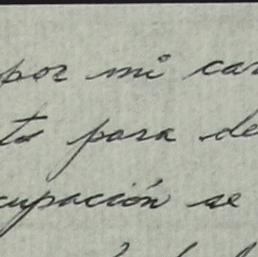 por mi car
to para de
cupación se